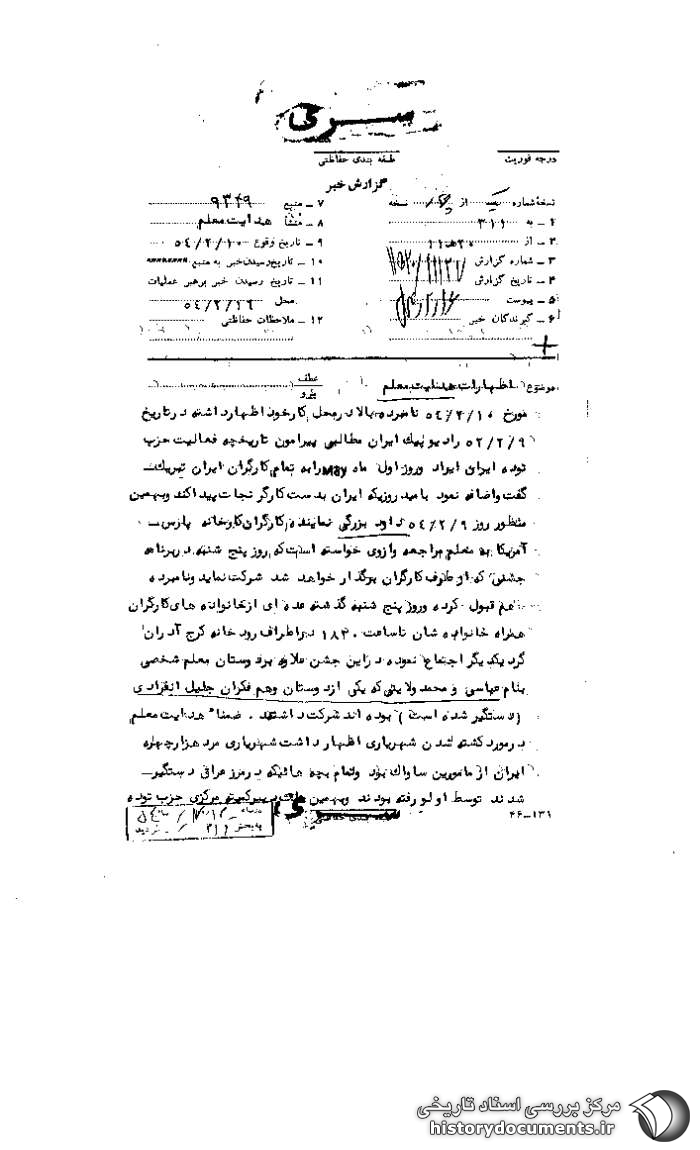 سری
درجه فوریت
طبقه بندی حفاظتی
گزارش خبر
نسخه شماره یک از نسخه
۲ - به ۳۱۱
۳ - از ۲۰ هـ ۱۱
۳ - شماره گزارش
۴ - تاریخ گزارش
۵ - پیوست
۶ - گیرندگان خبر
۷ - منبع ۹۳۴۹
۸ - منشأ هدایت معلم
۹ - تاریخ وقوع ۵۴/۲/۱۰
۱۰ - تاریخ رسیدن خبر به منبع
۱۱ - تاریخ رسیدن خبر برهبر عملیات
محل ۵۴/۲/۱۶
۱۲ - ملاحظات حفاظتی
موضوع اظهارات هدایت معلم
عطف
پیرو
مورخ ۵۴/۲/۱۰ نامبرده بالا در محل کار خود اظهار داشته در تاریخ
۵۲/۲/۹ رادیو پیک ایران مطالبی پیرامون تاریخچه فعالیت حزب
توده ایران ایراد و روز اول ماه May را به تمام کارگران ایران تبریک
گفت و اضافه نمود بامید روزیکه ایران بدست کارگر نجات پیدا کند و بهمین
منظور روز ۵۴/۲/۹ داود بزرگی نماینده کارگران کارخانه پارس
آمریکا به معلم مراجعه و از وی خواسته است که روز پنج شنبه در برنامه
جشنی که از طرف کارگران برگذار خواهد شد شرکت نماید و نامبرده
هم قبول کرده و روز پنج شنبه گذشته عده ای از خانواده های کارگران
همراه خانواده شان تا ساعت ۱۸۳۰ در اطراف رودخانه کرج آدران
گرد یکدیگر اجتماع نموده در این جشن علاوه بر دوستان معلم شخصی
بنام عباسی و محمد ولایتی که یکی از دوستان و هم فکران جلیل انفرادی
(دستگیر شده است) بوده اند شرکت داشتند . ضمنا هدایت معلم
در مورد کشته شدن شهریاری اظهار داشت شهریاری مرد هزار چهره
ایران از مامورین ساواک بود و تمام بچه هائیکه در مرز عراق دستگیر
شدند توسط او لو رفته بودند و بهمین دبیر کمیته مرکزی حزب توده
۴۶-۱۳۱
سری
مرکز بررسی اسناد تاریخی
historydocuments.ir